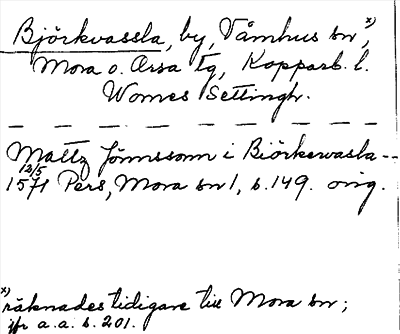 Björkvassla, by, Våmhus sn x),
Mora o. Orsa tg, Kopparb. l.
Womes Settingh.
Mattz Jönnssonn i Biörkewasla --
12/5
1571 Pers, Mora sn 1, s. 149. orig.
x)
räknades tidigare till Mora sn;
jfr a.a. s. 201.